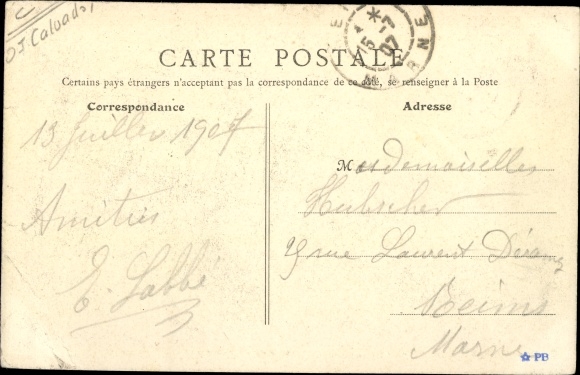 Calvados
CARTE POSTALE
Certains pays étrangers n'acceptant pas la correspondance de ce côté, se renseigner à la Poste
Correspondance
13 Juillet 1907
Amitiés
E. Labbé
Adresse
Mesdemoiselles
Hubscher
rue Laurent
Reims
Marne
15 -7
07
MARNE
PB